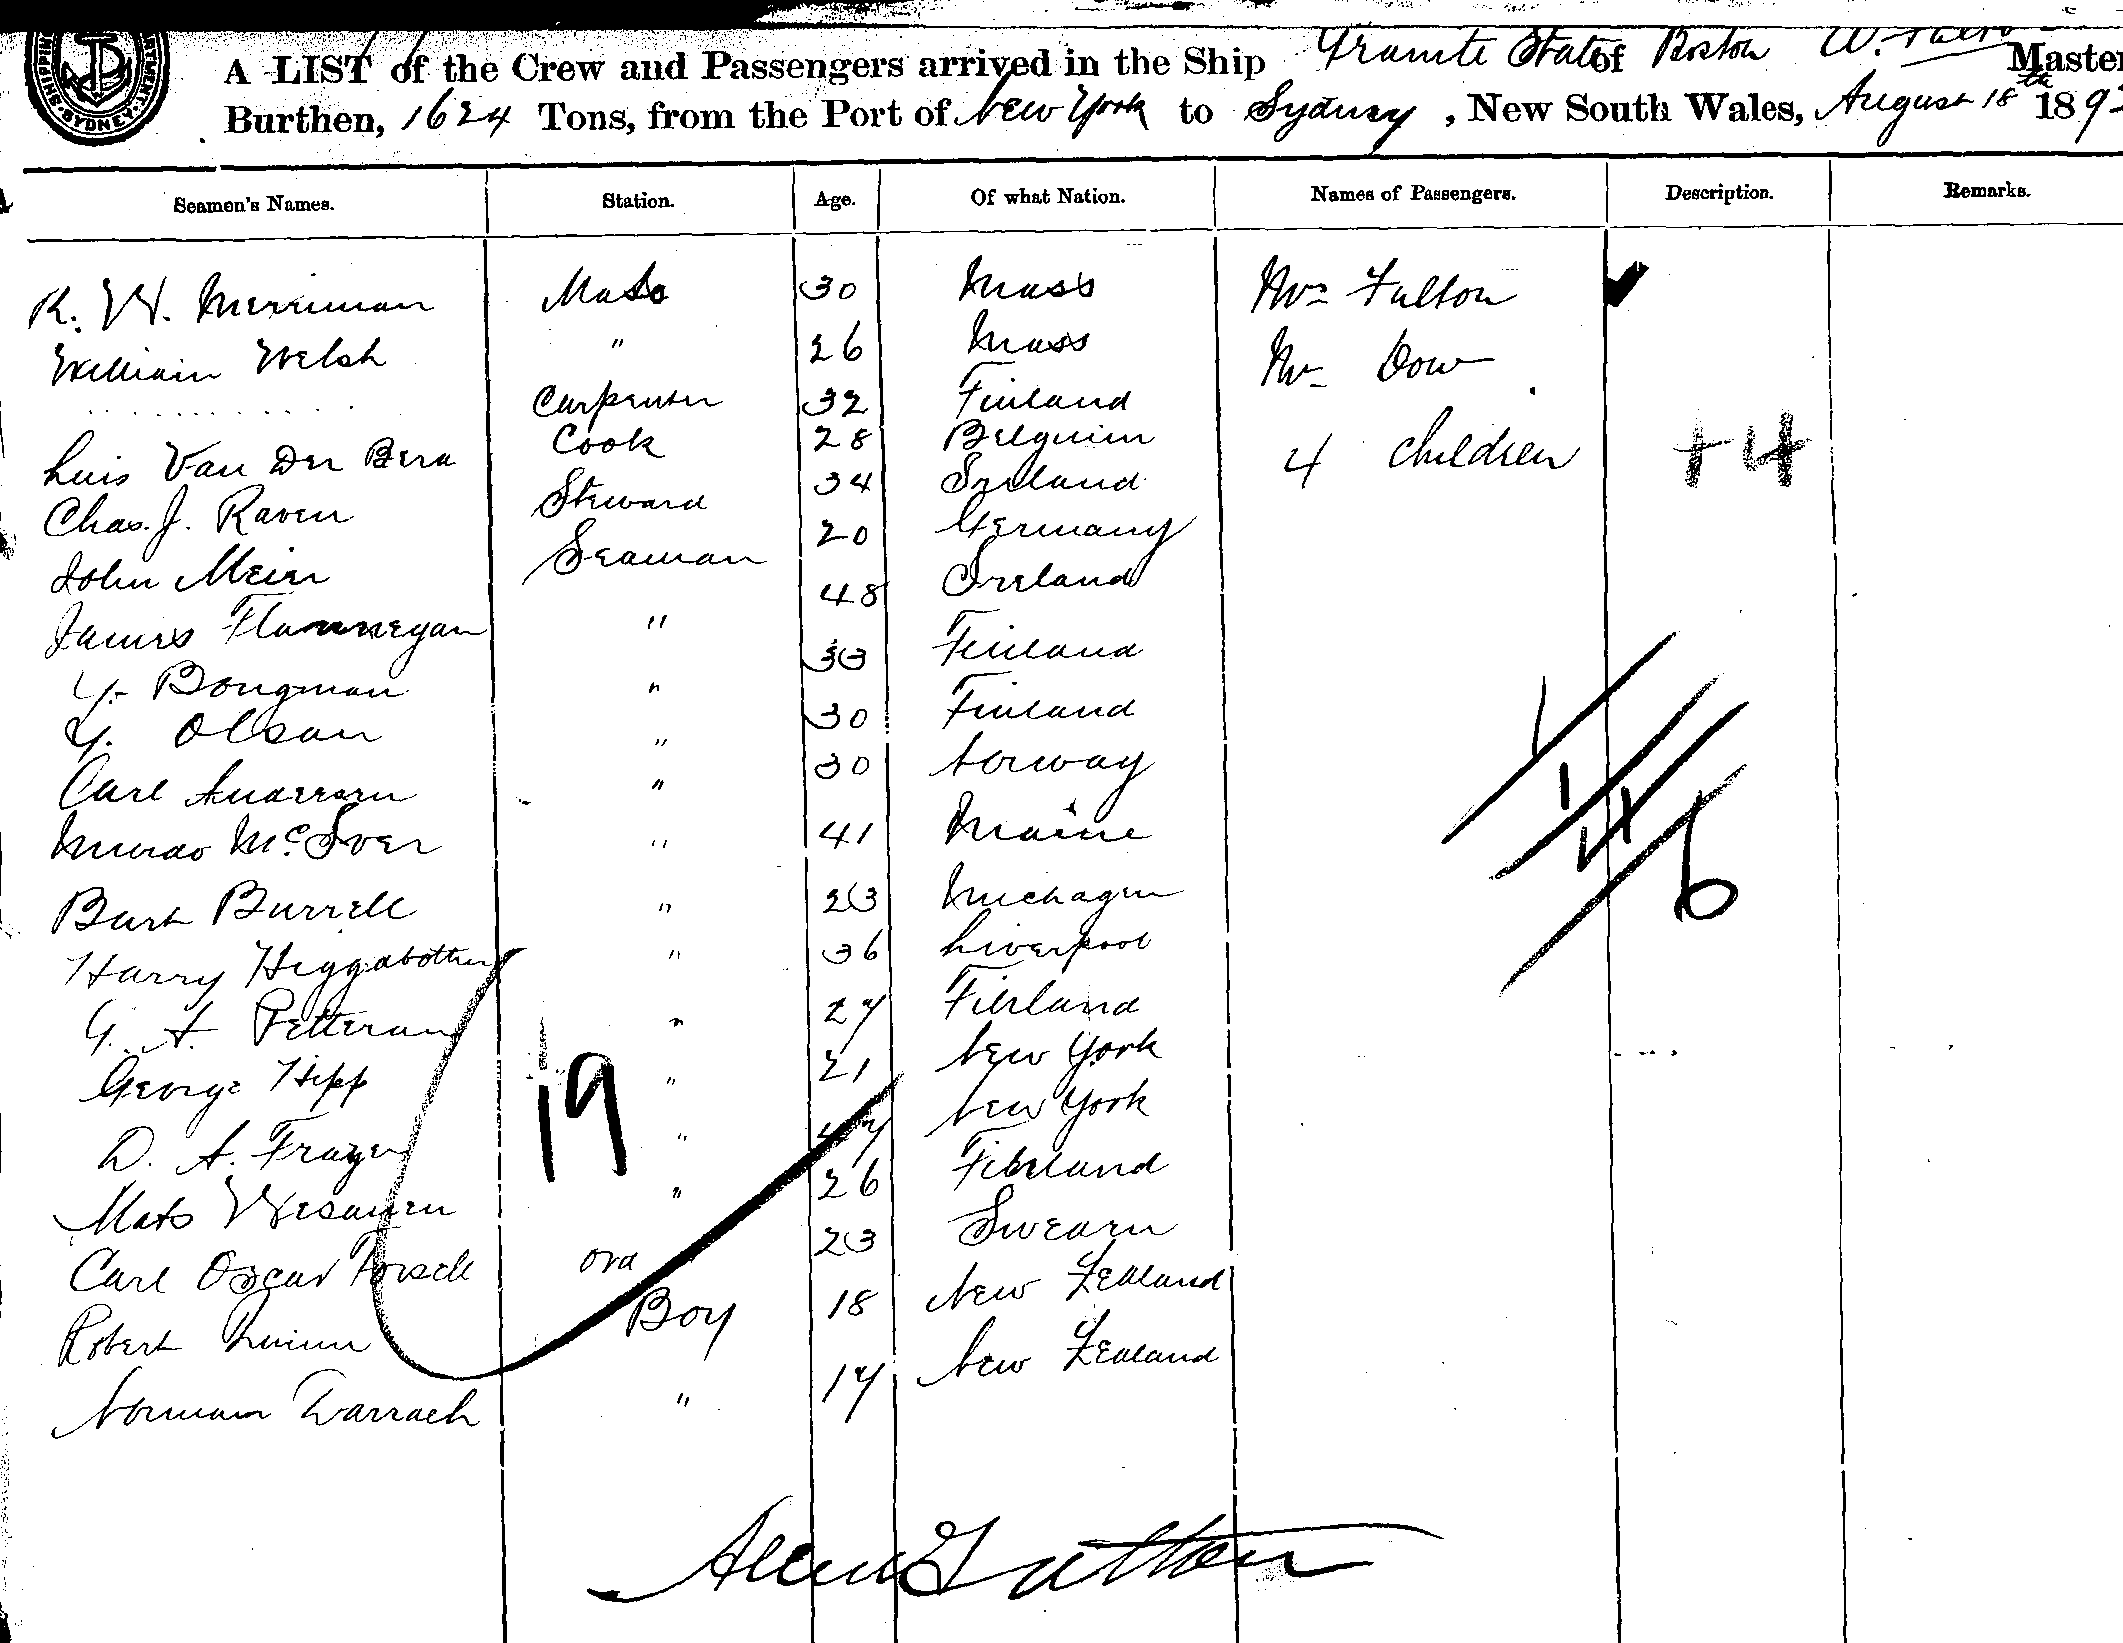 A LIST of the Crew and Passengers arrived in the Ship Granite State of Boston W. Master
Burthen, 1624 Tons, from the Port of New York to Sydney, New South Wales, August 18th 189
Seamen's Names. Station. Age. Of what Nation. Names of Passengers. Description. Remarks.
R. W. Merriman Mate 30 Mass Mrs Fulton
William Welsh " 26 Mass Mr Dow
Carpenter 32 Finland
Luis Van Der Bera Cook 28 Belguim 4 Children +4
Chas. J. Raven Steward 34 Ireland
John Meier Seaman 20 Germany
James Flannegan " 48 Ireland
Y. Bongman " 33 Finland
Y. Olsan " 30 Finland
Carl Andersen " 30 Norway
Murdo McIver " 41 Maine
Bart Burrell " 23 Michagin
Harry Higgabottum " 36 Liverpool
G. A. Petterand " 27 Finland
George Hipp " 21 New York
D. A. Frazer " New York
Mats Wesanen " 26 Finland
Carl Oscar Forsell Ord 23 Sweden
Robert Boy 18 New Zealand
Norman Darrach " 17 New Zealand
1
1
4
6
19
Fulton
SYDNEY